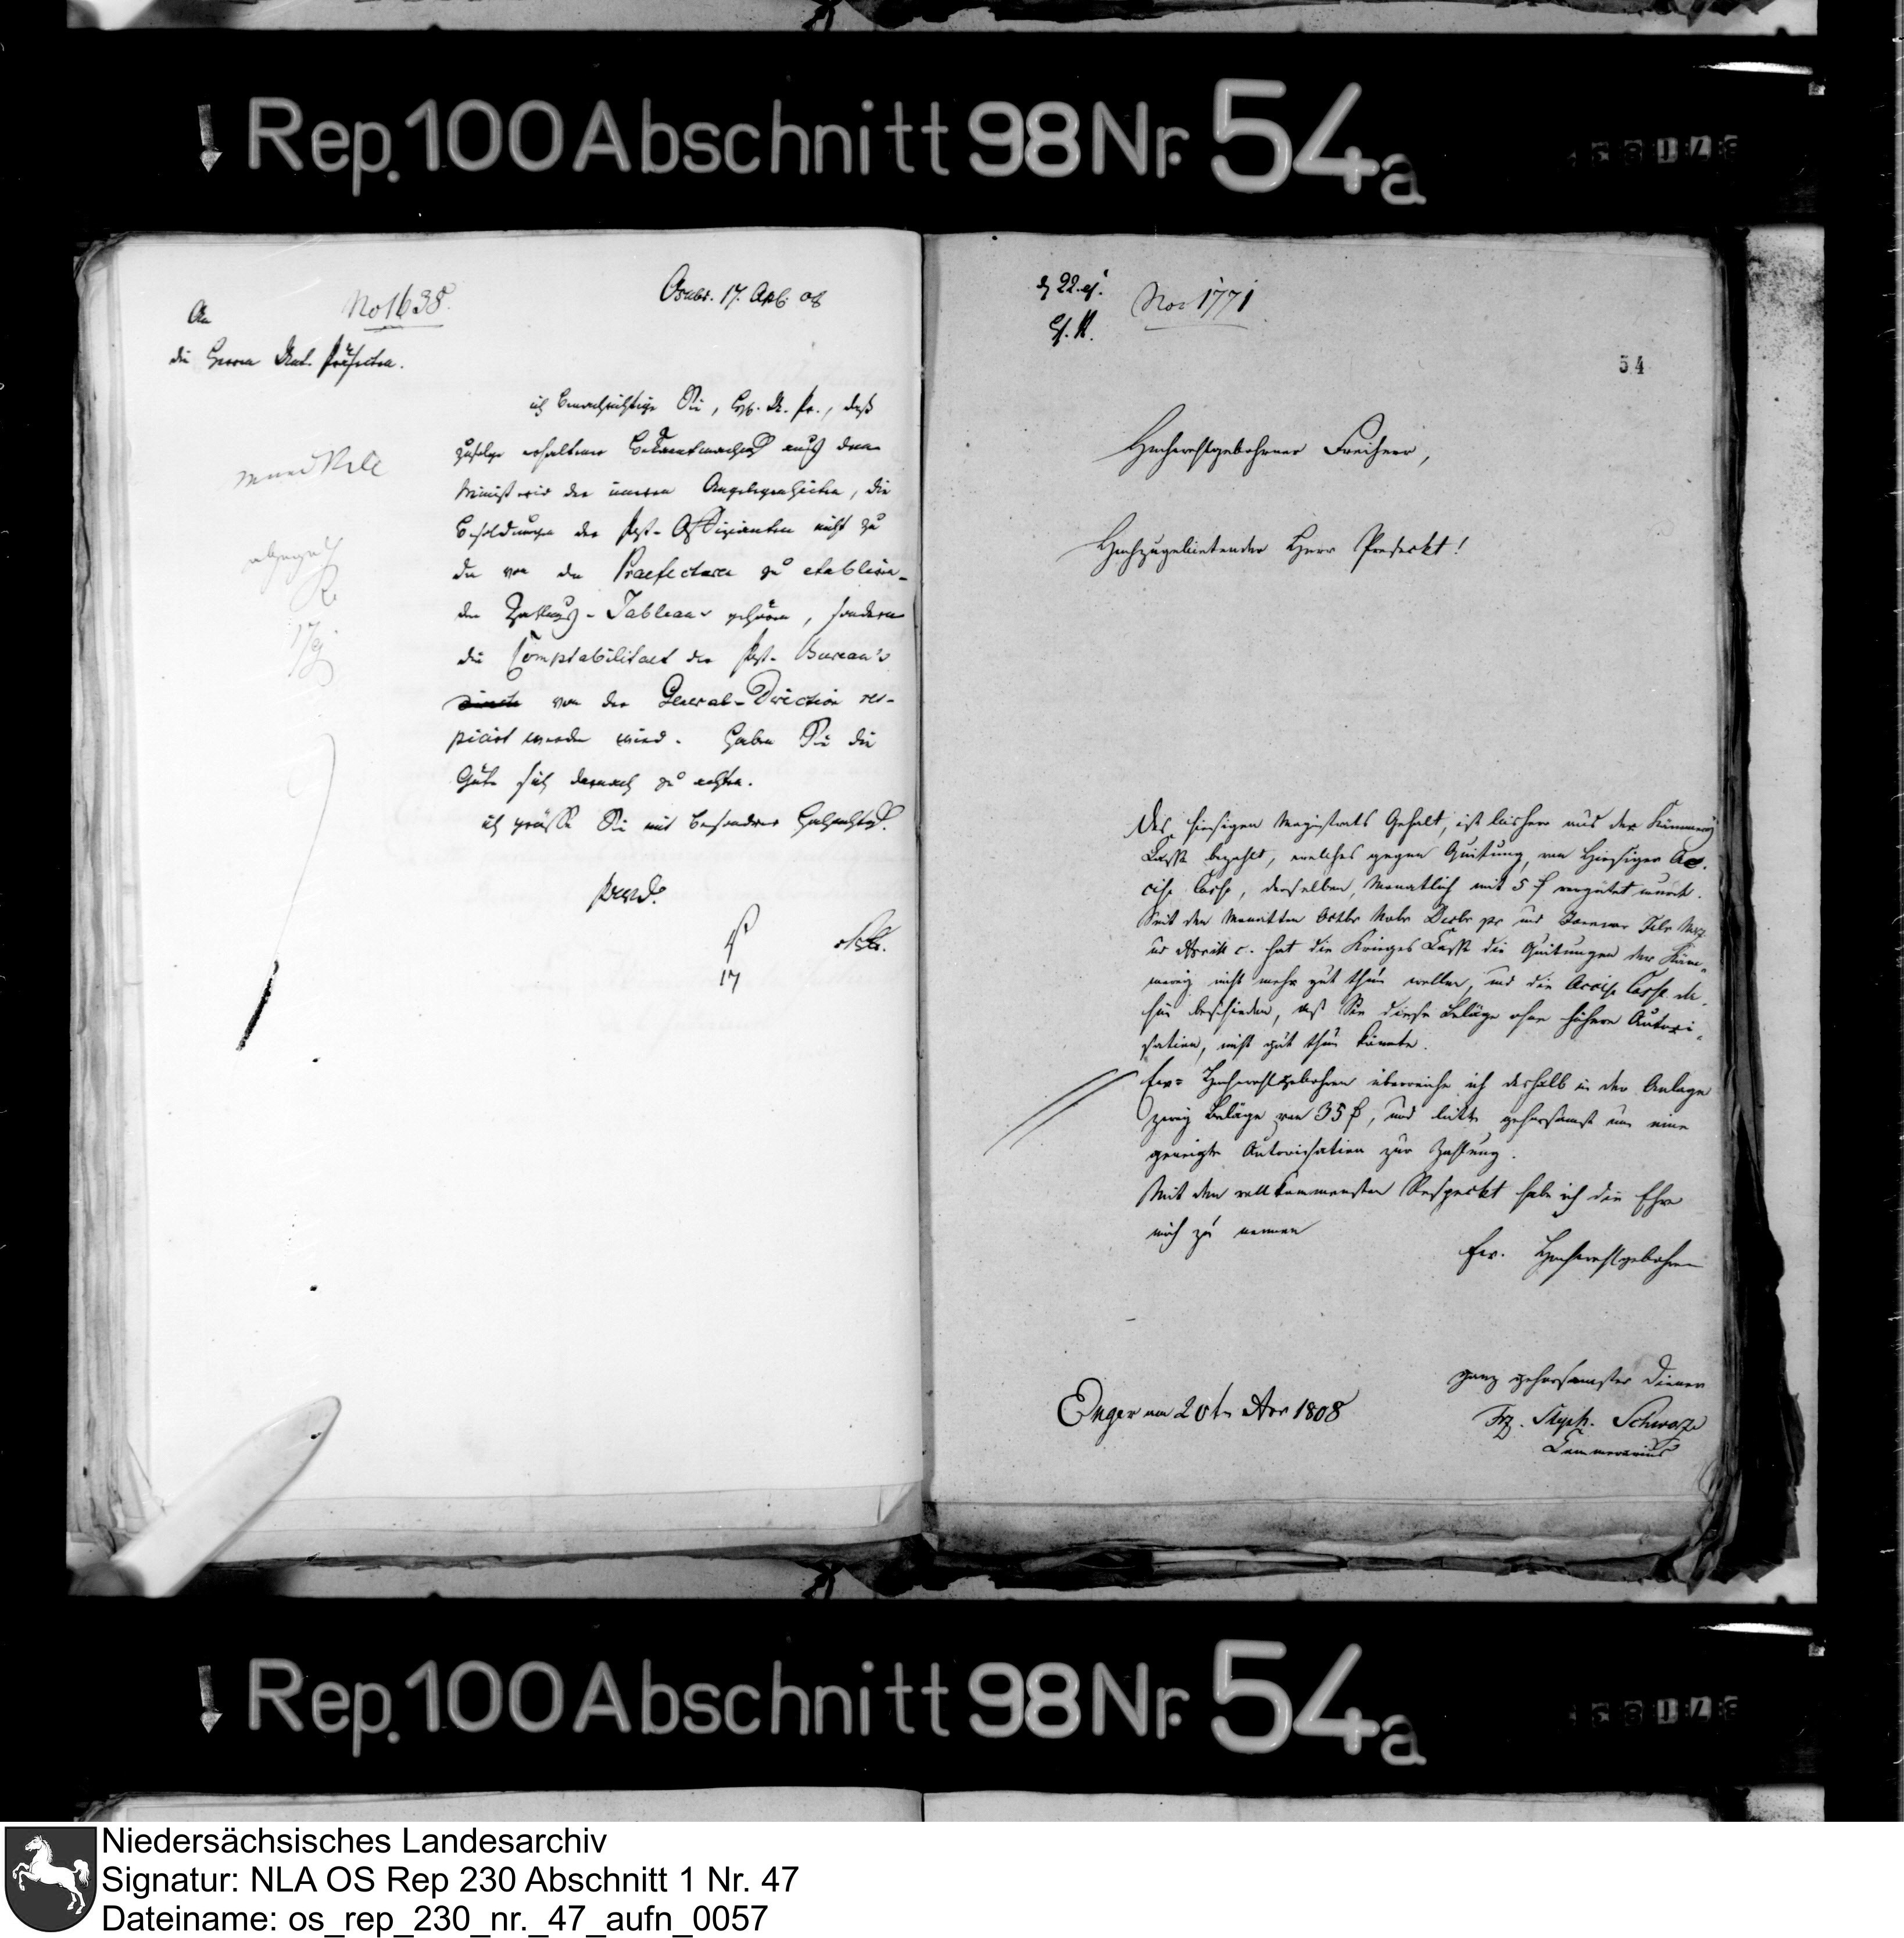 Rep. 100 Abschnitt 98 Nr. 54a
No 1638.
Osnabr. 17. Apl. 08
An
die Herren Unt. Präfecten.
ich benachrichtige Sie, H. U. Pr., daß
zufolge erhaltener Bekanntmachung aus dem
Ministerio der inneren Angelegenheiten, die
Besoldungen der Post-Offizianten nicht zu
den von den Praefecturen zu etabliren-
den Zahlungs-Tableaux gehören, sondern
die Comptabilitaet der Post-Bureau's
von der General-Direction res-
piciirt werden wird. Haben Sie die
Güte sich darnach zu achten.
ich grüße Sie mit besonderer Hochachtung.
17
22. ej.
No. 1771
54
Hochwohlgebohrner Freiherr,
Hochzugebietender Herr Prefeckt!
Des hiesigen Magistrats Gehalt, ist bisher aus der Kämmerey
Casse bezahlt, welches gegen Quitung, von hiesiger Ac-
cise Casse, derselben, Monatlich mit 5 vergütet wurde.
Seit den Monatten Octbr Nobr Decbr pr und Januar Febr Mrz
und Aprill c. hat die Krieges Casse die Quitungen der Käm-
merey nicht mehr gut thun wollen, und die Accise Casse da-
hin beschieden, daß Sie diese Beläge ohne höhere Autori-
sation, nicht gut thun könnte.
Ew= Hochwohlgebohren überreiche ich deshalb in der Anlage
zwey Beläge von 35, und bitte gehorsamst um eine
geneigte Autorisation zur Zahlung.
Mit dem vollkommensten Respeckt habe ich die Ehre
mich zu nennen
Ew. Hochwohlgebohren
ganz gehorsamster Diener
Enger am 20t. Apr 1808
Frz. Steph. Schwarze
Cammerarius
Rep. 100 Abschnitt 98 Nr. 54a
Niedersächsisches Landesarchiv
Signatur: NLA OS Rep 230 Abschnitt 1 Nr. 47
Dateiname: os_rep_230_nr._47_aufn_0057